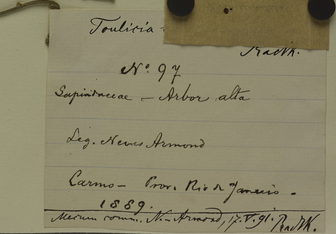 Toulicia
Radlk.
Nº. 97
Sapindaceae — Arbor alta
Leg. Neves Armond
Carmo — Prov. Rio de Janeiro.
1889.
Mecum comm. N. Armond, 17. V. 91. Radlk.